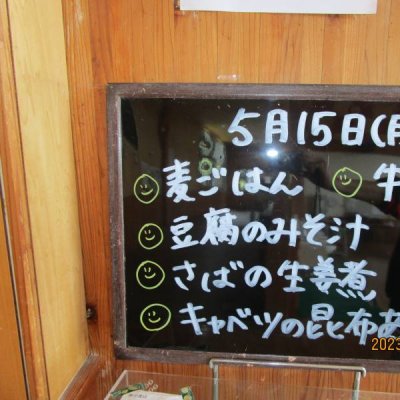 5月15日(月
麦ごはん 牛
豆腐のみそ汁
さばの生姜煮
キャベツの昆布あ
2023